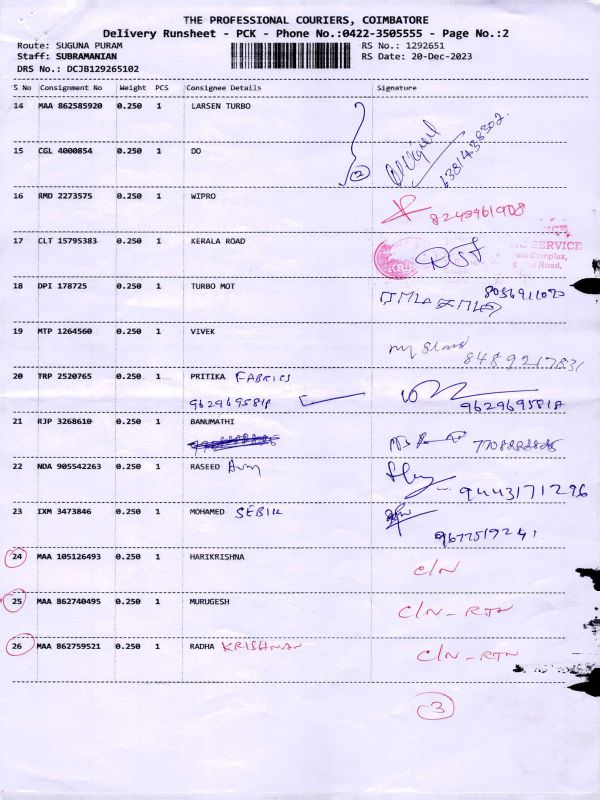 THE PROFESSIONAL COURIERS, COIMBATORE
Delivery Runsheet - PCK - Phone No.:0422-3505555 - Page No.:2
Route: SUGUNA PURAM RS No.: 1292651
Staff: SUBRAMANIAN RS Date: 20-Dec-2023
DRS No.: DCJB129265102
S No Consignment No Weight PCS Consignee Details Signature
14 MAA 862585920 0.250 1 LARSEN TURBO
15 CGL 4000854 0.250 1 DO 2 6381438302
16 RMD 2273575 0.250 1 WIPRO
17 CLT 15795383 0.250 1 KERALA ROAD SERVICE
Complex,
Road,
18 DPI 178725 0.250 1 TURBO MOT 8056911090
19 MTP 1264560 0.250 1 VIVEK 8489217831
20 TRP 2520765 0.250 1 PRITIKA FABRICS
9629695818 9629695818
21 RJP 3268610 0.250 1 BANUMATHI
22 NDA 905542263 0.250 1 RASEED 9443171296
23 IXM 3473846 0.250 1 MOHAMED 9677519241
24 MAA 105126493 0.250 1 HARIKRISHNA C/N
25 MAA 862740495 0.250 1 MURUGESH C/N-RTN
26 MAA 862759521 0.250 1 RADHA KRISHNAN C/N-RTN
3